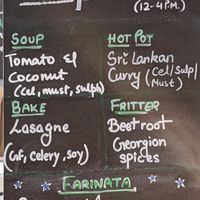 (12-4PM.)
SOUP
Tomato &
Coconut
(Cel, must, sulph)
HOT POT
Sri Lankan
Curry (Cel/Sulp/
Must)
BAKE
Lasagne
(Gf, celery, soy)
FRITTER
Beetroot
Georgion
spices
FARINATA